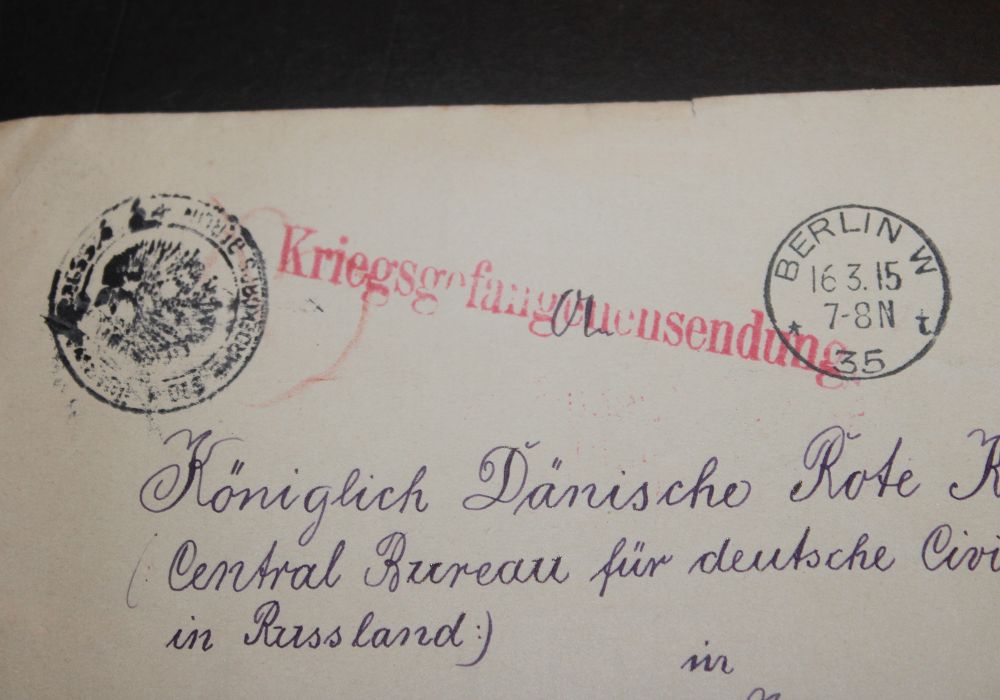 Kriegsgefangenensendung.
BERLIN W
16 3.15
7-8 N
* t
35
Königlich Dänische Rote
(Central Bureau für deutsche
in Russland:)
in